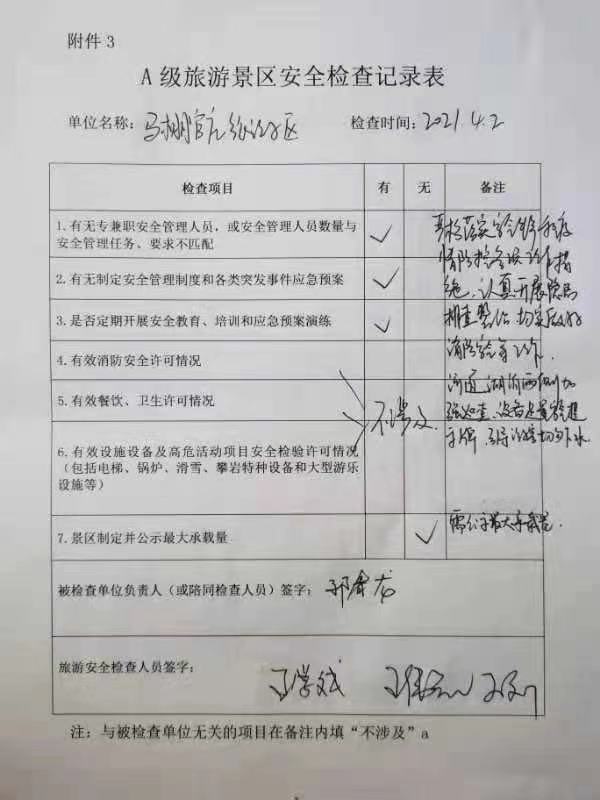 附件 3
A 级旅游景区安全检查记录表
单位名称: 检查时间: 2021.4.2
检查项目 有 无 备注
1.有无专兼职安全管理人员，或安全管理人员数量与
安全管理任务、要求不匹配 ✓
2.有无制定安全管理制度和各类突发事件应急预案 ✓
3.是否定期开展安全教育、培训和应急预案演练 ✓
4.有效消防安全许可情况
5.有效餐饮、卫生许可情况
不涉及
6.有效设施设备及高危活动项目安全检验许可情况
（包括电梯、锅炉、滑雪、攀岩特种设备和大型游乐
设施等）
7.景区制定并公示最大承载量 ✓
严格落实
情防控各项工作措
施，认真开展隐患
排查整治，切实做好
消防安全工作．
需公示最大承载量．
被检查单位负责人（或陪同检查人员）签字:
旅游安全检查人员签字:
注：与被检查单位无关的项目在备注内填“不涉及”a